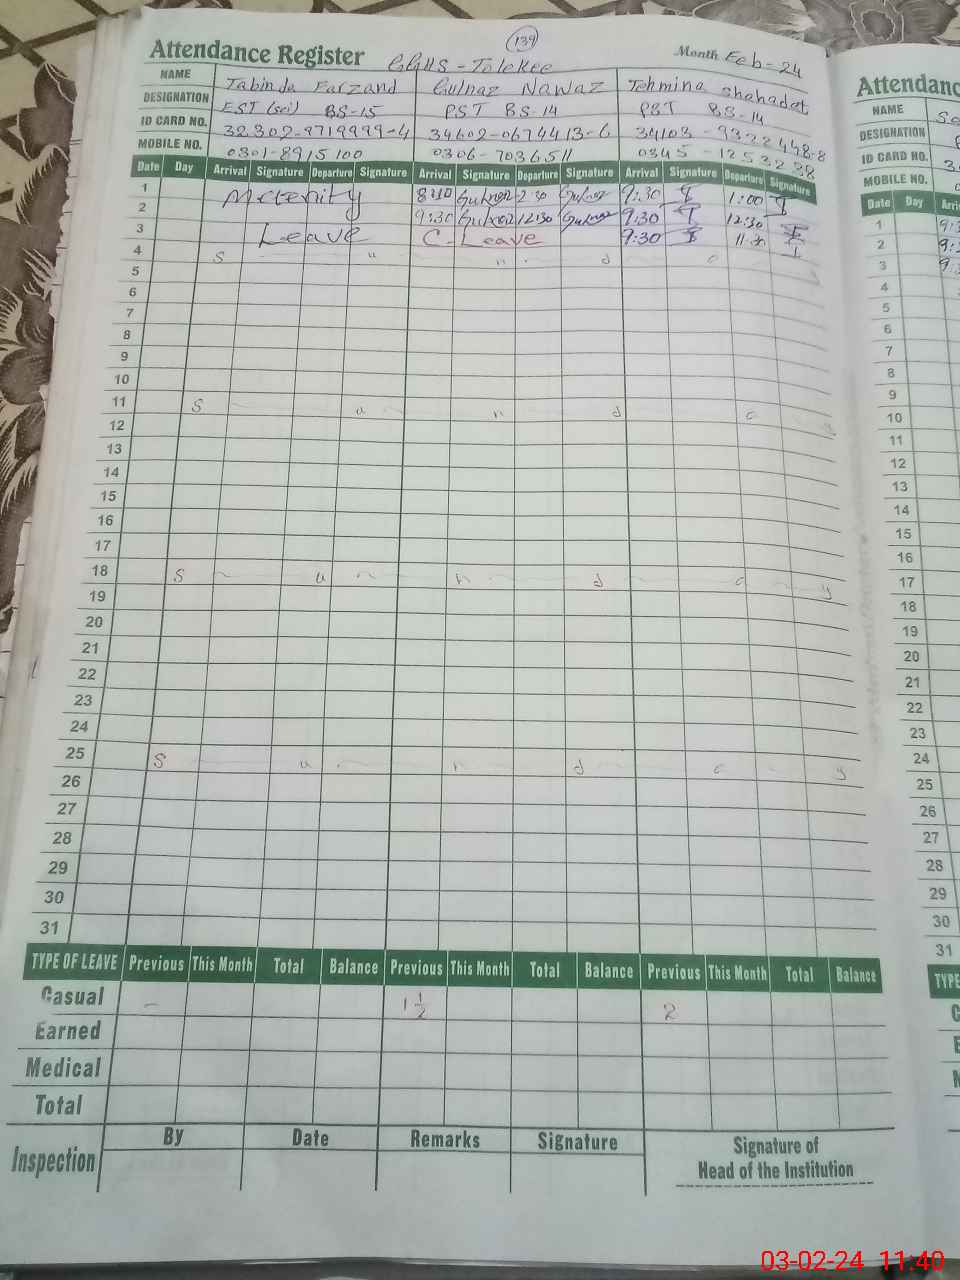 139
Attendance Register GGHS - Tolekee Month Feb-24
NAME Tabinda Farzand Gulnaz Nawaz Tehmina Shahadat
DESIGNATION EST (sci) BS-15 PST BS-14 PST BS-14
ID CARD NO. 32302-9719999-4 34602-0674413-6 34103-9322448-8
MOBILE NO. 0301-8915100 0306-7036511 0345-1253238
Date Day Arrival Signature Departure Signature Arrival Signature Departure Signature Arrival Signature Departure Signature
1 Meternity 8:10 Gulnaz 2:30 Gulnaz 9:30 1:00
2 9:30 Gulnaz 12:30 Gulnaz 9:30 12:30
3 Leave C-Leave 9:30 11:30
4 S u n d a y
5
6
7
8
9
10
11 S u n d a y
12
13
14
15
16
17
18 S u n d a y
19
20
21
22
23
24
25 S u n d a y
26
27
28
29
30
31
TYPE OF LEAVE Previous This Month Total Balance Previous This Month Total Balance Previous This Month Total Balance
Casual - 1 1/2 2
Earned
Medical
Total
Inspection By Date Remarks Signature Signature of
Head of the Institution
Attendanc
NAME
DESIGNATION
ID CARD NO.
MOBILE NO.
Date Day Arri
1
2
3
4
5
6
7
8
9
10
11
12
13
14
15
16
17
18
19
20
21
22
23
24
25
26
27
28
29
30
31
TYPE
03-02-24 11:40